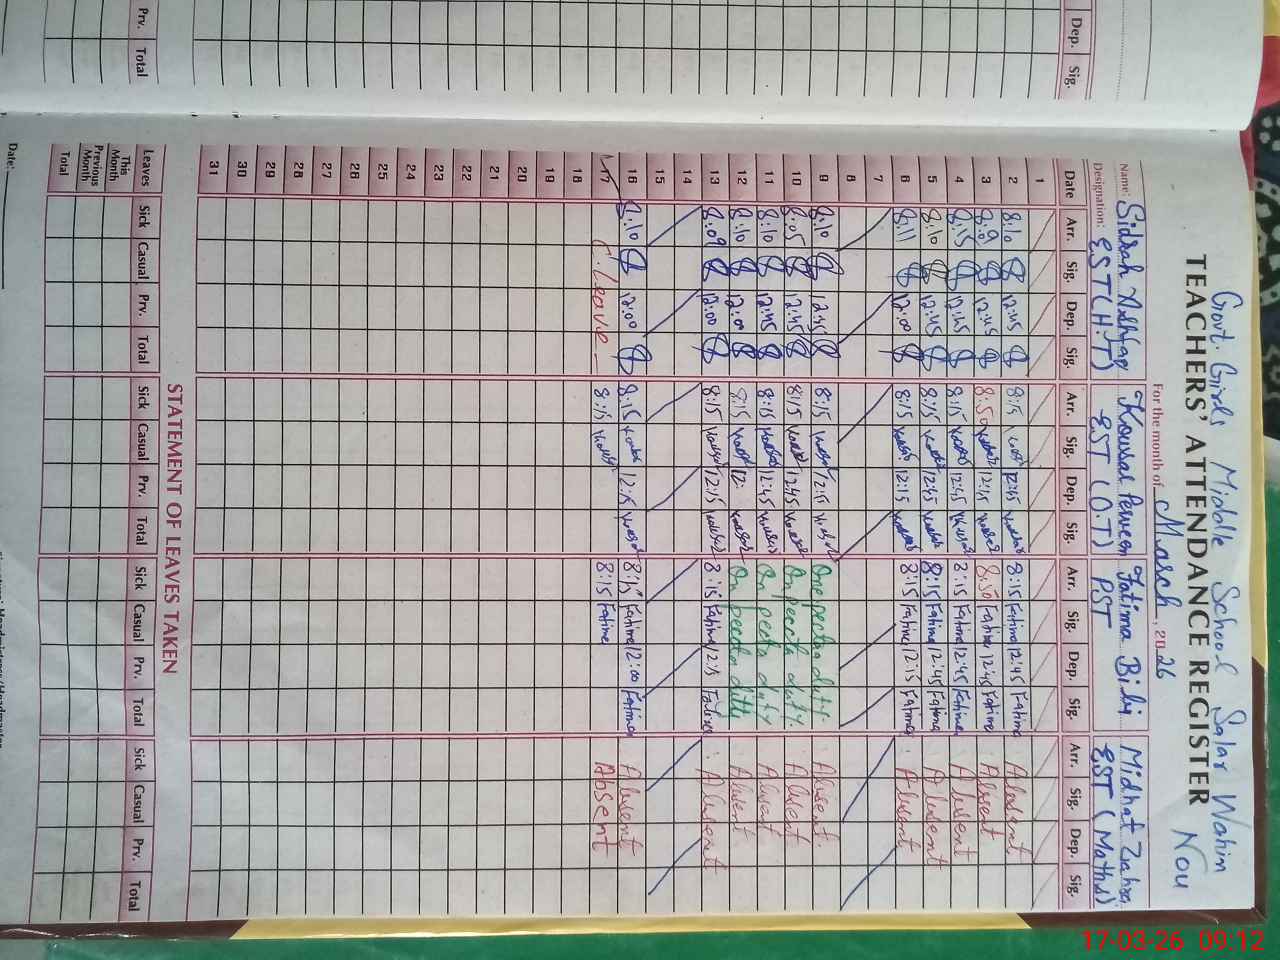 Govt. Girls Middle School Salar Wahin Nou
TEACHERS' ATTENDANCE REGISTER
For the month of March, 2026
Name: Sidrah Ashfaq Kousar Perveen Fatima Bibi Midhat Zahra
Designation: EST (H.T) EST (O.T) PST EST (Maths)
Date Arr. Sig. Dep. Sig. Arr. Sig. Dep. Sig. Arr. Sig. Dep. Sig. Arr. Sig. Dep. Sig.
1
2 8:10 12:45 8:15 12:45 8:15 Fatima 12:45 Fatima Absent
3 8:09 12:45 8:50 12:45 8:50 Fatima 12:45 Fatima Absent
4 8:15 12:45 8:15 12:45 8:15 Fatima 12:45 Fatima Absent
5 8:10 12:45 8:15 12:45 8:15 Fatima 12:45 Fatima Absent
6 8:11 12:00 8:15 12:15 8:15 Fatima 12:15 Fatima Absent
7
8
9 8:10 12:45 8:15 12:15 duty Absent
10 8:05 12:45 8:15 12:45 On duty Absent
11 8:10 12:45 8:15 12:45 On duty Absent
12 8:10 12:00 8:15 On Absent
13 8:09 12:00 8:15 12:15 8:15 Fatima 12:15 Fatima Absent
14
15
16 8:10 12:00 8:15 12:15 8:15 Fatima 12:00 Fatima Absent
17 C. Leave 8:15 8:15 Fatima Absent
18
19
20
21
22
23
24
25
26
27
28
29
30
31
STATEMENT OF LEAVES TAKEN
Leaves Sick Casual Prv. Total Sick Casual Prv. Total Sick Casual Prv. Total Sick Casual Prv. Total
This Month
Previous Month
Total
Date:
Dep. Sig.
Prv. Total
17-03-26 09:12